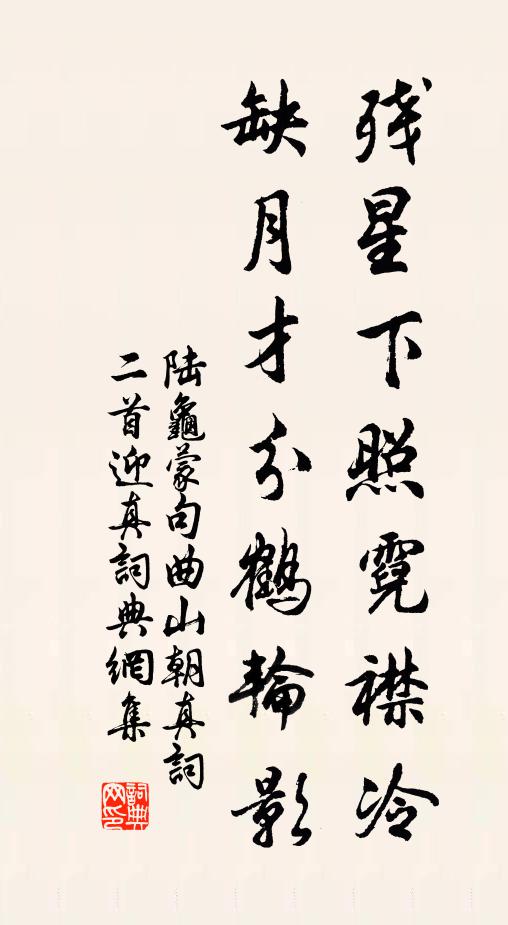 残星下照霓襟冷
缺月才分鶴輪影
陆龜蒙句曲山朝真詞
二首迎真詞典網集
詞典网印